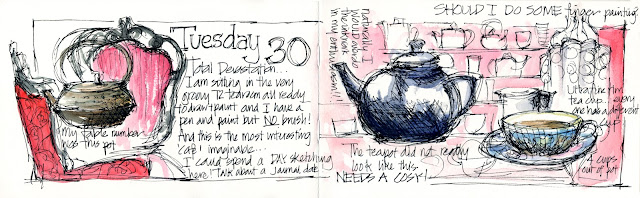 Tuesday 30
Total Devastation...
I am sitting in the very
groovy T2 tearoom all ready
to draw+paint and I have a
pen and paint but NO brush!
And this is the most interesting
café imaginable...
I could spend a DAY sketching
here! Talk about a journal date
my table number
has this pot
naturally I
would
in my
SHOULD I DO SOME finger painting
The teapot did not really
look like this
NEEDS A COSY!
Ultra fine rim
tea cup... every
one has a different
cup
4 cups
out of pot